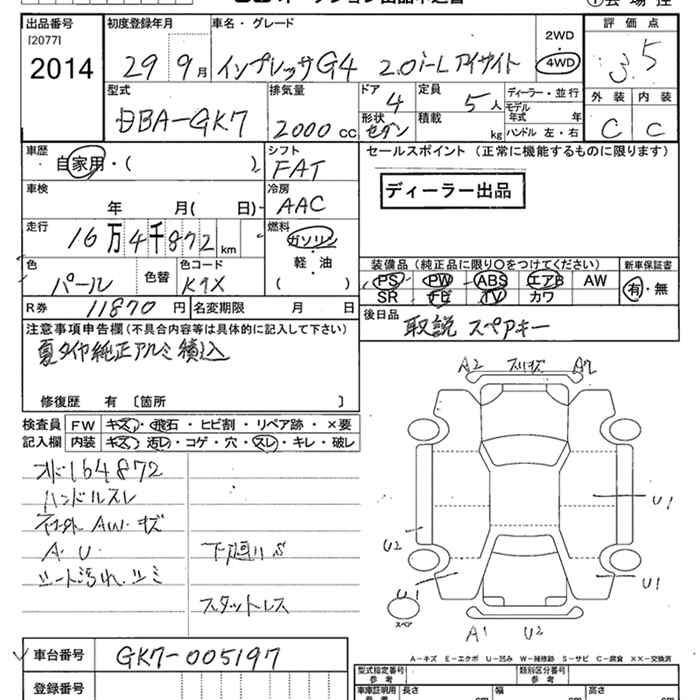 出品番号 初度登録年月 車名・グレード 評価点
[2077]
2014 29年 9月 インプレッサG4 2.0i-Lアイサイト 2WD 4WD 3.5
型式 排気量 ドア 4 定員 5人 ディーラー・並行 外装 内装
モデル年式 年
DBA-GK7 2000cc 形状 セダン 積載 kg ハンドル 左・右 C C
車歴 シフト セールスポイント (正常に機能するものに限ります)
自家用・( ) FAT
ディーラー出品
車検 冷房
年 月( 日) AAC
走行 燃料
16万4千872km ガソリン
軽・油
( )
色 色替 色コード 装備品 (純正品に限り○をつけてください) 新車保証書
パール K1X PS PW ABS エアB AW 有・無
SR TV カワ
R券 11870円 名変期限 月 日 後日品 取説 スペアキー
注意事項申告欄(不具合内容等は具体的に記入して下さい)
夏タイヤ純正アルミ積込
修復歴 有 〔箇所 〕
A2 スリキズ
検査員 FW キズ・飛石・ヒビ割・リペア跡・×要
記入欄 内装 キズ・汚レ・コゲ・穴・スレ・キレ・破レ
164872
ハンドルスレ
社外AW.キズ U1
A.U. 下廻りS U2
シート汚れ.シミ U1 U1
スタットレス スペア
A1 U2
A-キズ E-エクボ U-凹み W-補修跡 S-サビ C-腐食 ××-交換済
車台番号 GK7-005197 型式指定番号 参考 類別区分番号 参考
登録番号 車庫証明用 参考 長さ cm 幅 cm 高さ cm